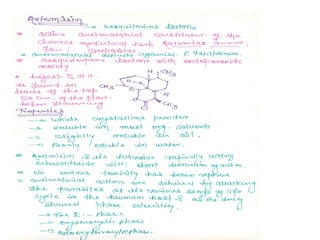 Artemisin
→ sesquiterpine lactone
active antimalarial constituent of the
Chinese medicinal herb Artemisia annua,
Fam: compositae
antimalarial activity against P. falciparum
sesquiterpene lactone with endoperoxide
moiety
highest % of a
is found in
leaves of the top
50 cm. of the plant
before flowering
CH3
H3C
H
O
CH3
O
Properties
→ white crystalline powder
→ soluble in most org. solvents
→ slightly soluble in oil.
→ Poorly soluble in water.
Artemisin & its derivative rapidly acting
with short duration of action
No serious toxicity has been
antimalarial action are achieved by attacking
the parasites at its various stage of life
cycle in the human host & as the drug
showed phase selectivity.
→ the E - phase
→ erythrocytic phase
→ exoerythrocytic phase.